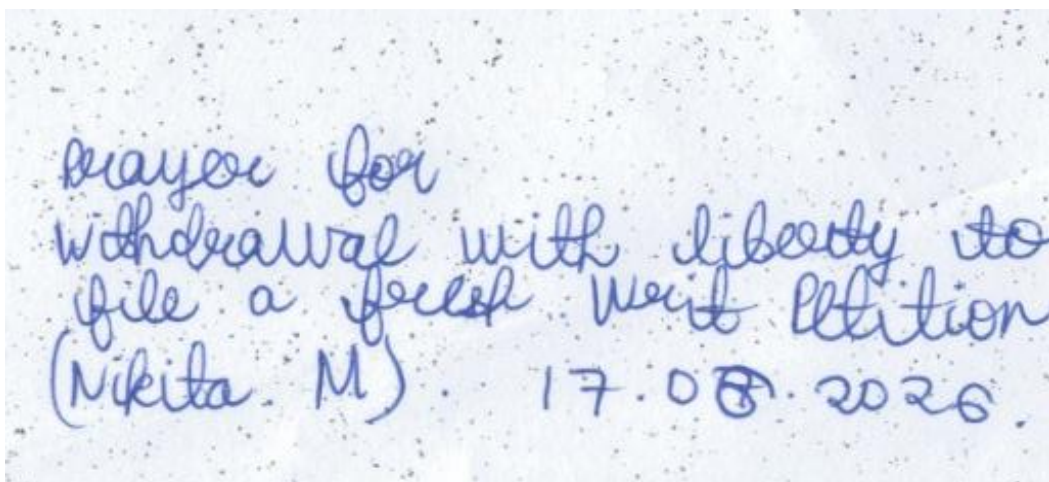 Prayer for
withdrawal with liberty to
file a fresh Writ Petition
(Nikita. M) 17.08.2026.